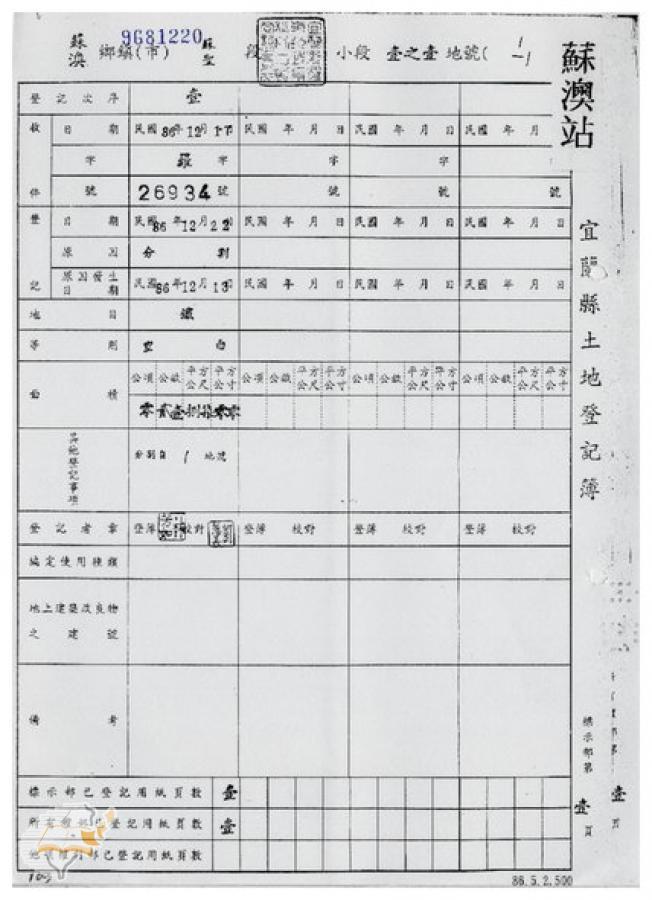 9681220
蘇澳 鄉鎮(市) 蘇聖 段 小段 壹之壹 地號( 1-1
蘇澳站
登記次序 壹
收件 日期 民國86年12月17日 民國 年 月 日 民國 年 月 日 民國 年 月
字 羅字 字 字
號 26934號 號 號 號
登記 日期 民國86年12月22日 民國 年 月 日 民國 年 月 日 民國 年 月 日
原因 分割
原因發生日期 民國86年12月13日 民國 年 月 日 民國 年 月 日 民國 年 月 日
地目 鐵
等則 空白
面積 公頃 公畝 平方公尺 平方公寸 公頃 公畝 平方公尺 平方公寸 公頃 公畝 平方公尺 平方公寸 公頃 公畝 平方公尺 平方公寸
零貳壹捌柒零零
其他登記事項 分割自 1 地號
登記者章 登簿 校對 登簿 校對 登簿 校對 登簿 校對
編定使用種類
地上建築改良物之建號
備考
標示部已登記用紙頁數 壹
所有權部已登記用紙頁數 壹
他項權利部已登記用紙頁數
宜蘭縣土地登記簿
標示部第壹頁
壹頁
86.5.2,500